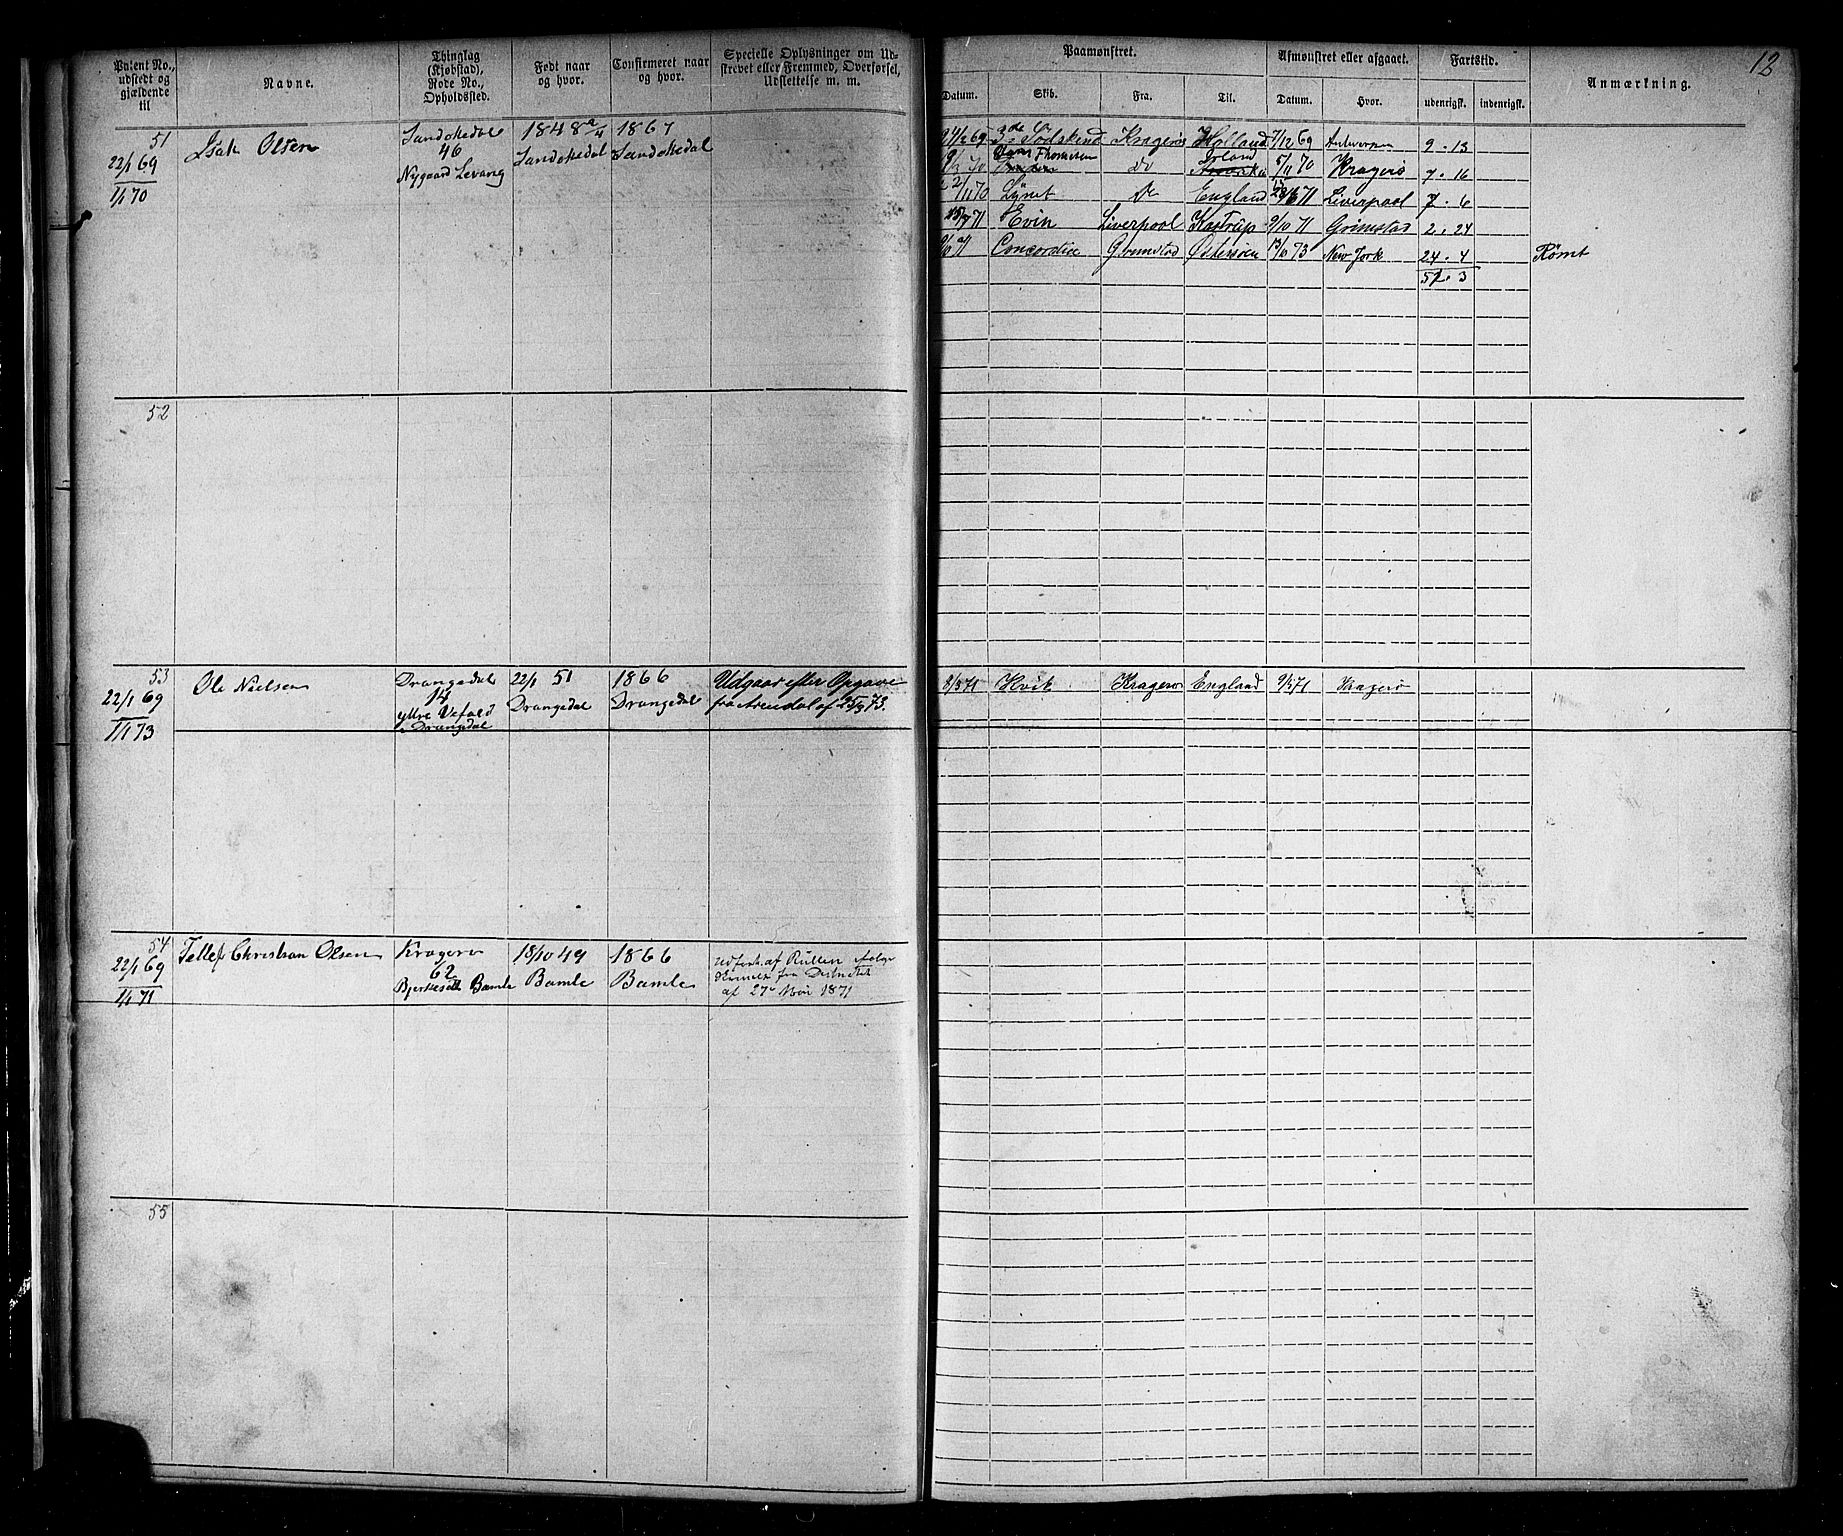 12
Patent No., udstedt og gjældende til
Navne.
Thinglag (Kjøbstad), Rode No., Opholdssted.
Født naar og hvor.
Confirmeret naar og hvor.
Specielle Oplysninger om Udstrevet eller Fremmed, Overførsel, Udslettelse m. m.
Paamønstret.
Afmønstret eller afgaaet.
Fartstid.
Anmærkning.
Datum. Skib. Fra. Til. Datum. Hvor. udenrigsk. indenrigsk.
51
22/1 69
1/1 70
Isak Olsen
Sandøkedal
46
Nygaard Levang
1848
Sandøkedal
1867
Sandøkedal
69 3de Sødskend Kragerø Holland 7/12 69 Antwerpen 9 . 13
70 Thomesen Do Irland 5/11 70 Kragerø 7 . 16
2/11 70 Lynet Do England 71 Liverpool 7 . 6
71 Evin Liverpool Kastrup 9/10 71 Grimstad 2 . 24
71 Concordia Grimstad Østersøen 13/10 73 New York 24 . 4 Rømt
51 . 3
52
53
22/1 69
1/1 73
Ole Nielsen
Drangedal
14
yttre Vefald
Drangedal
22/1 51
Drangedal
1866
Drangedal
Udgaar efter Opgave
fra Arendal af 25/3 73.
3/3 71 Hvik Kragerø England 9/5 71 Kragerø
54
22/1 69
1/1 71
Tellef Christian Olsen
Kragerø
62
Bamle
18/10 49
Bamle
1866
Bamle
af Rullen ifølge
fra Distriktet
af 27de Mai 1871
55